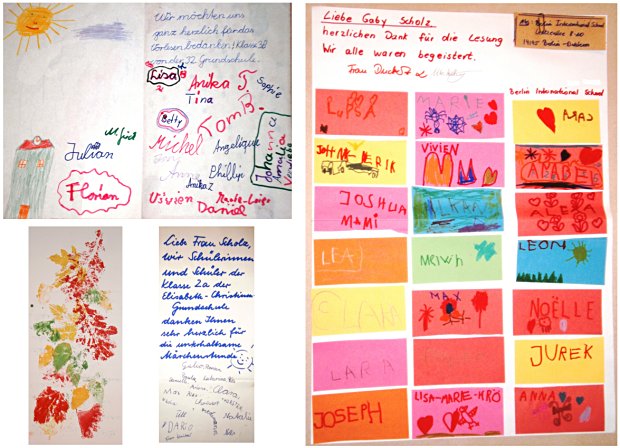 Wir möchten uns
ganz herzlich für das
Vorlesen bedanken! Klasse 5B
von der 32. Grundschule.
Lisa
Anika J.
Sophie
Tina
Betty
Tom B.
Michel
Julian
Angelique
Anna
Phillip
Anika Z
Johanna
Florian
Vivien
Daniel
Liebe Frau Scholz,
wir Schülerinnen
und Schüler der
Klasse 2a der
Elisabeth-Christinen-
Grundschule
danken Ihnen
sehr herzlich für
die unterhaltsame
Märchenstunde
Clara
Till
Natalie
DARIO
Liebe Gaby Scholz,
herzlichen Dank für die Lesung
Wir alle waren begeistert.
Berlin International School
MARIE
MAJ
JOHN-ERIK
VIVIEN
ANNABELL
JOSHUA
MAMI
LEA
Melvin
LEON
MAX
NOËLLE
LARA
JUREK
JOSEPH
LISA-MARIE-KRÖ
ANNA